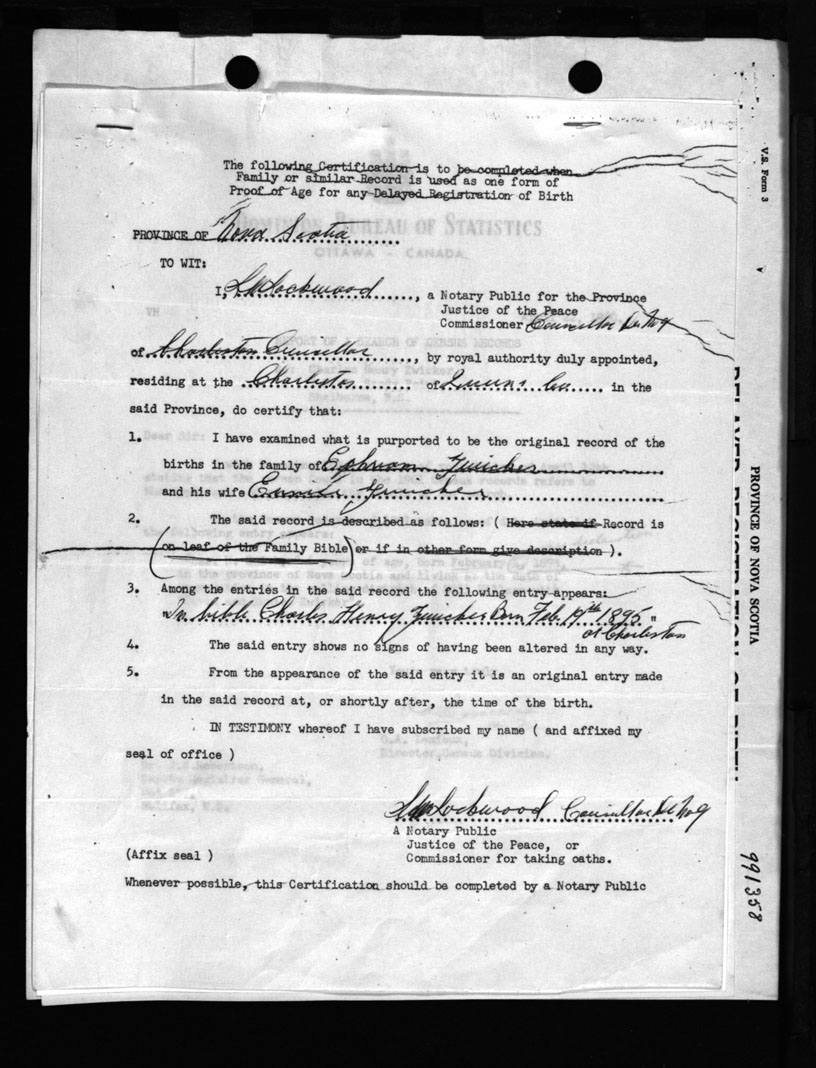 The following Certification is to be completed when
Family or similar Record is used as one form of
Proof of Age for any Delayed Registration of Birth
DOMINION BUREAU OF STATISTICS
OTTAWA - CANADA
PROVINCE OF Nova Scotia
TO WIT:
I, Lockwood, a Notary Public for the Province
Justice of the Peace
Commissioner Councillor
of Charleston Councillor, by royal authority duly appointed,
residing at the Charleston of Queens Co in the
said Province, do certify that:
1. I have examined what is purported to be the original record of the
births in the family of Ephriam Zwicker
and his wife Zwicker
2. The said record is described as follows: ( Here state if Record is
on leaf of the Family Bible) or if in other form give description ).
3. Among the entries in the said record the following entry appears:
"In bible Charles Henry Zwicker Born Feb 19th 1895"
at Charleston
4. The said entry shows no signs of having been altered in any way.
5. From the appearance of the said entry it is an original entry made
in the said record at, or shortly after, the time of the birth.
IN TESTIMONY whereof I have subscribed my name ( and affixed my
seal of office )
Lockwood Councillor
A Notary Public
Justice of the Peace, or
Commissioner for taking oaths.
(Affix seal )
Whenever possible, this Certification should be completed by a Notary Public
V.S. Form 3
PROVINCE OF NOVA SCOTIA
DELAYED REGISTRATION OF BIRTH
991358